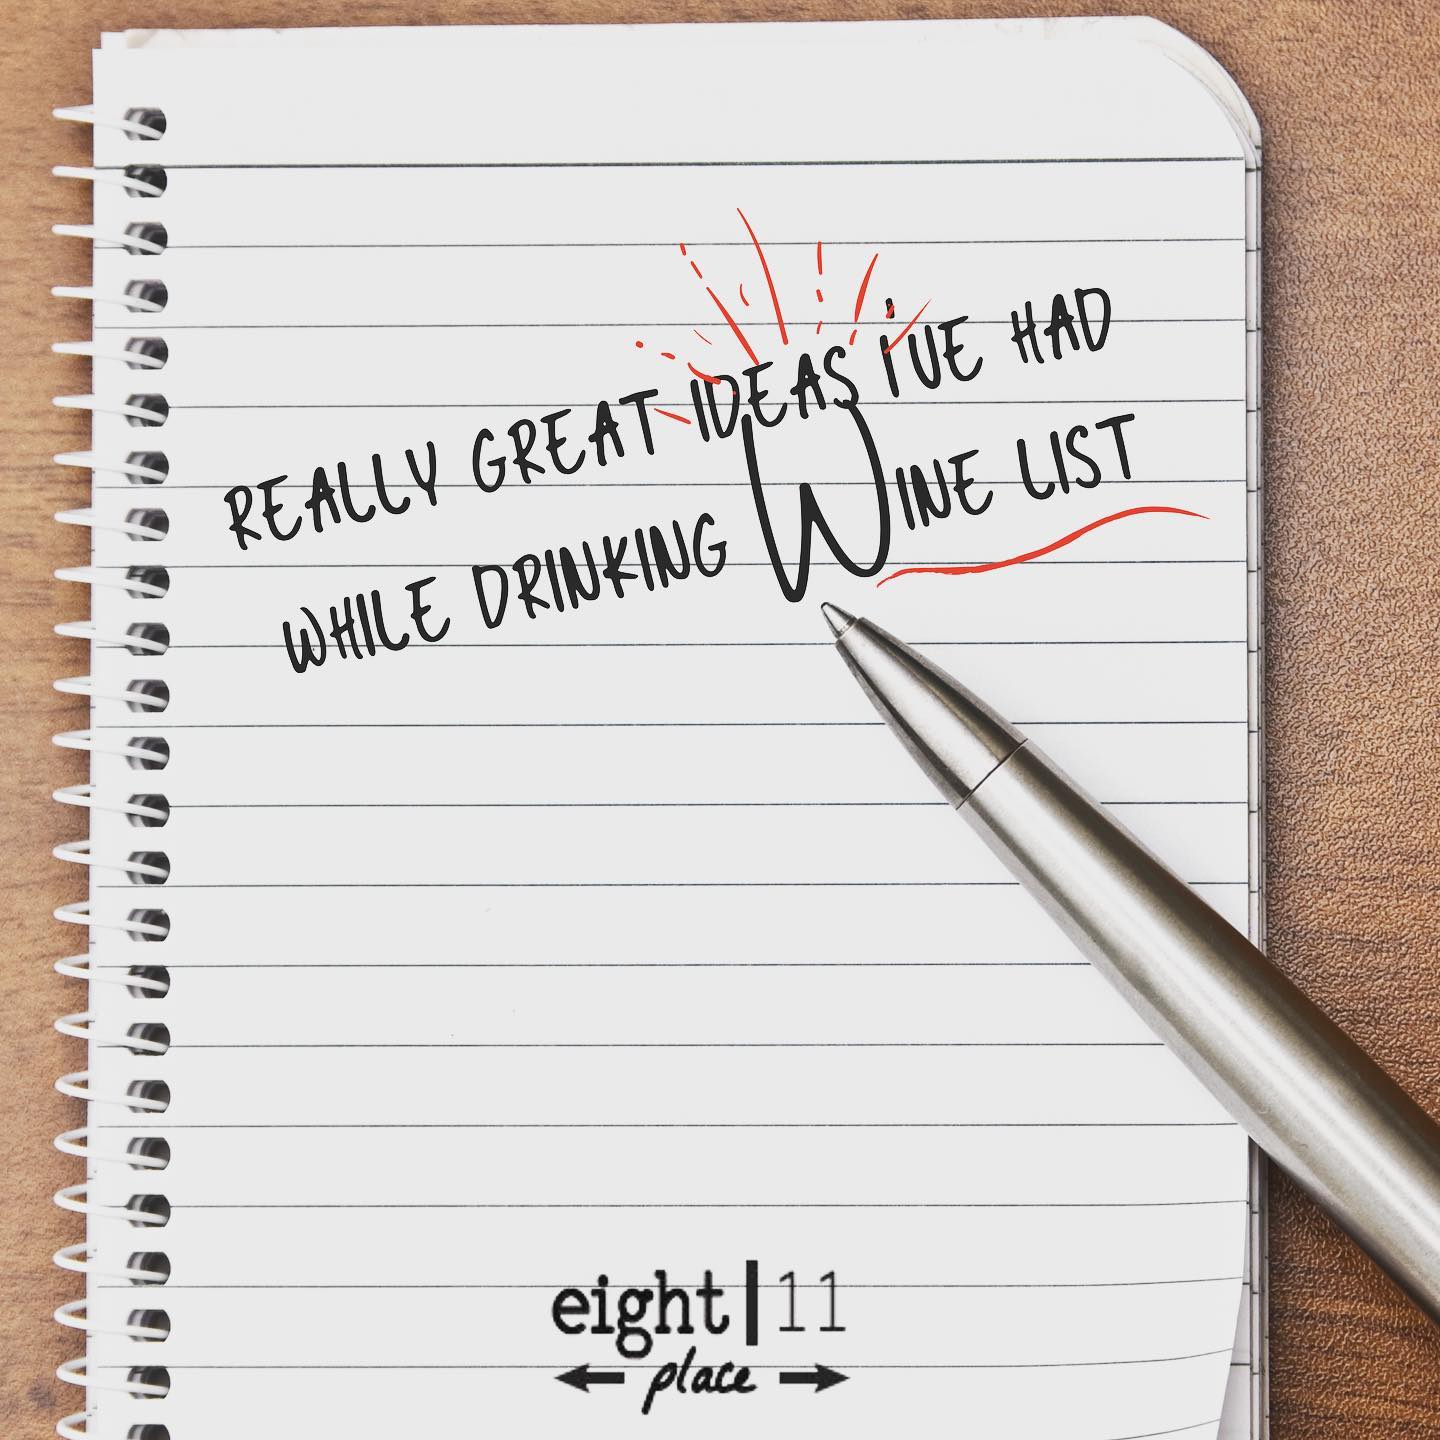 REALLY GREAT IDEAS I'VE HAD
WHILE DRINKING WINE LIST
eight|11
place